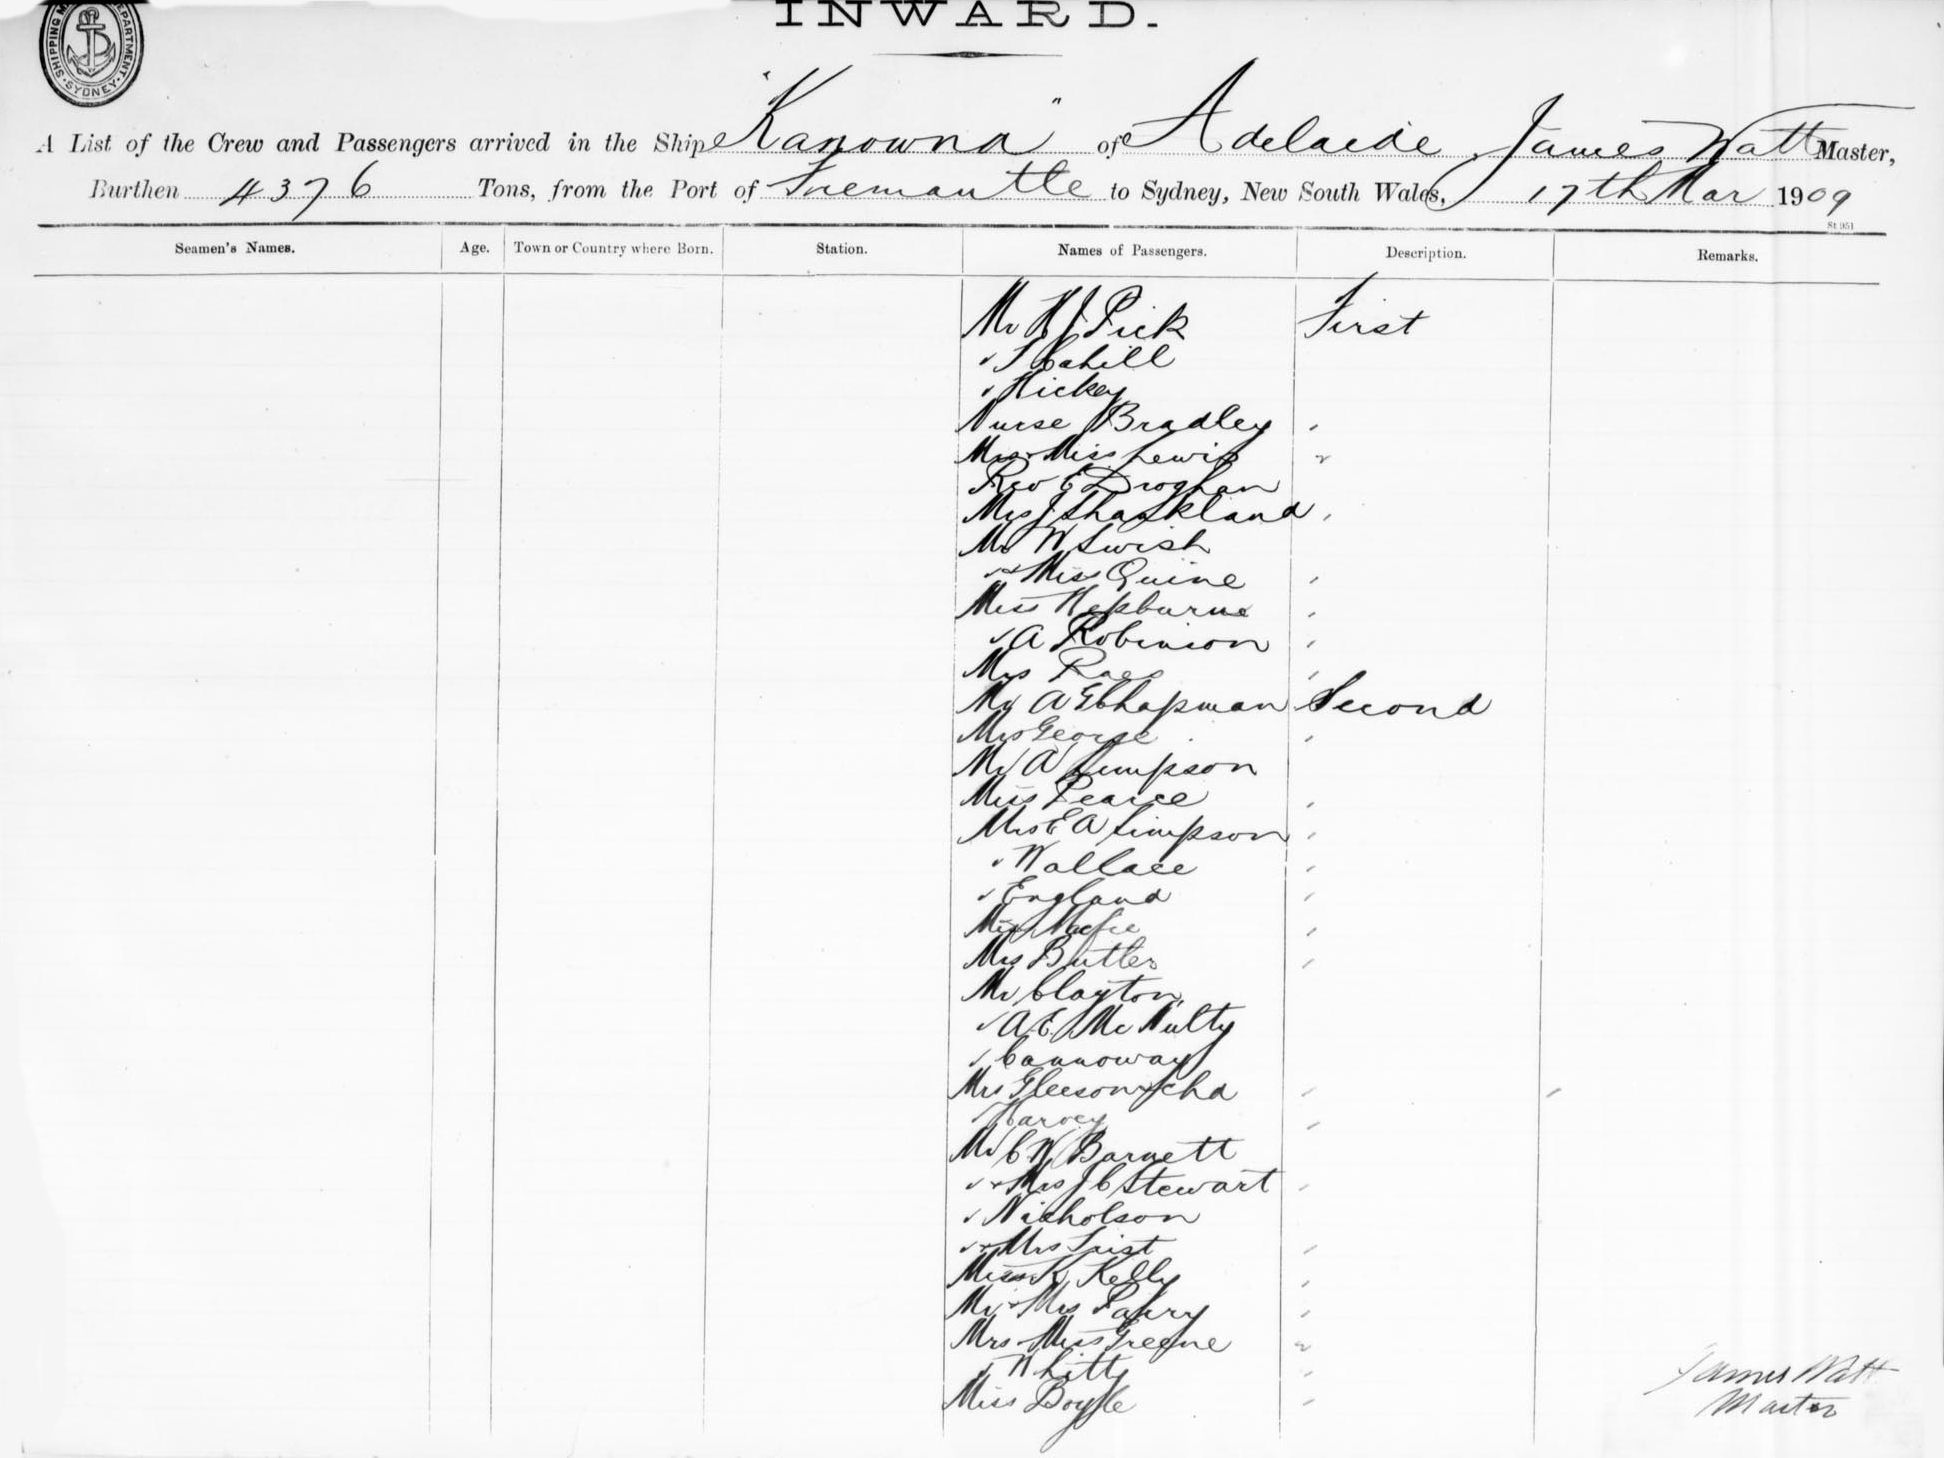 SHIPPING M DEPARTMENT SYDNEY
INWARD.
A List of the Crew and Passengers arrived in the Ship "Kanowna" of Adelaide, James Watt Master,
Burthen 4376 Tons, from the Port of Fremantle to Sydney, New South Wales, 17th Mar 1909
St 951
Seamen's Names. Age. Town or Country where Born. Station. Names of Passengers. Description. Remarks.
Mr H J Pick First
" T Cahill
" Hickey
Nurse Bradley "
Mrs + Miss Lewis "
Rev E Droghan
Mrs J Shankland "
Mr W Swish
" + Miss Quine "
Miss Hepburne "
" A Robinson "
Mrs "
Mr A E Chapman Second
Mrs George "
Mr A Simpson
Miss Pearce "
Mrs E A Simpson "
" Wallace "
" England "
Miss "
Mrs Butler "
Mr Clayton
" A E McNulty
" Cannoway
Mrs Gleeson + chd " "
" Harvey "
Mr C W Barnett
" + Mrs J C Stewart "
" Nicholson
" + Mrs "
Miss K Kelly "
Mr + Mrs "
Mrs + Miss Greene "
" Whitty "
Miss Boyle "
James Watt
Master